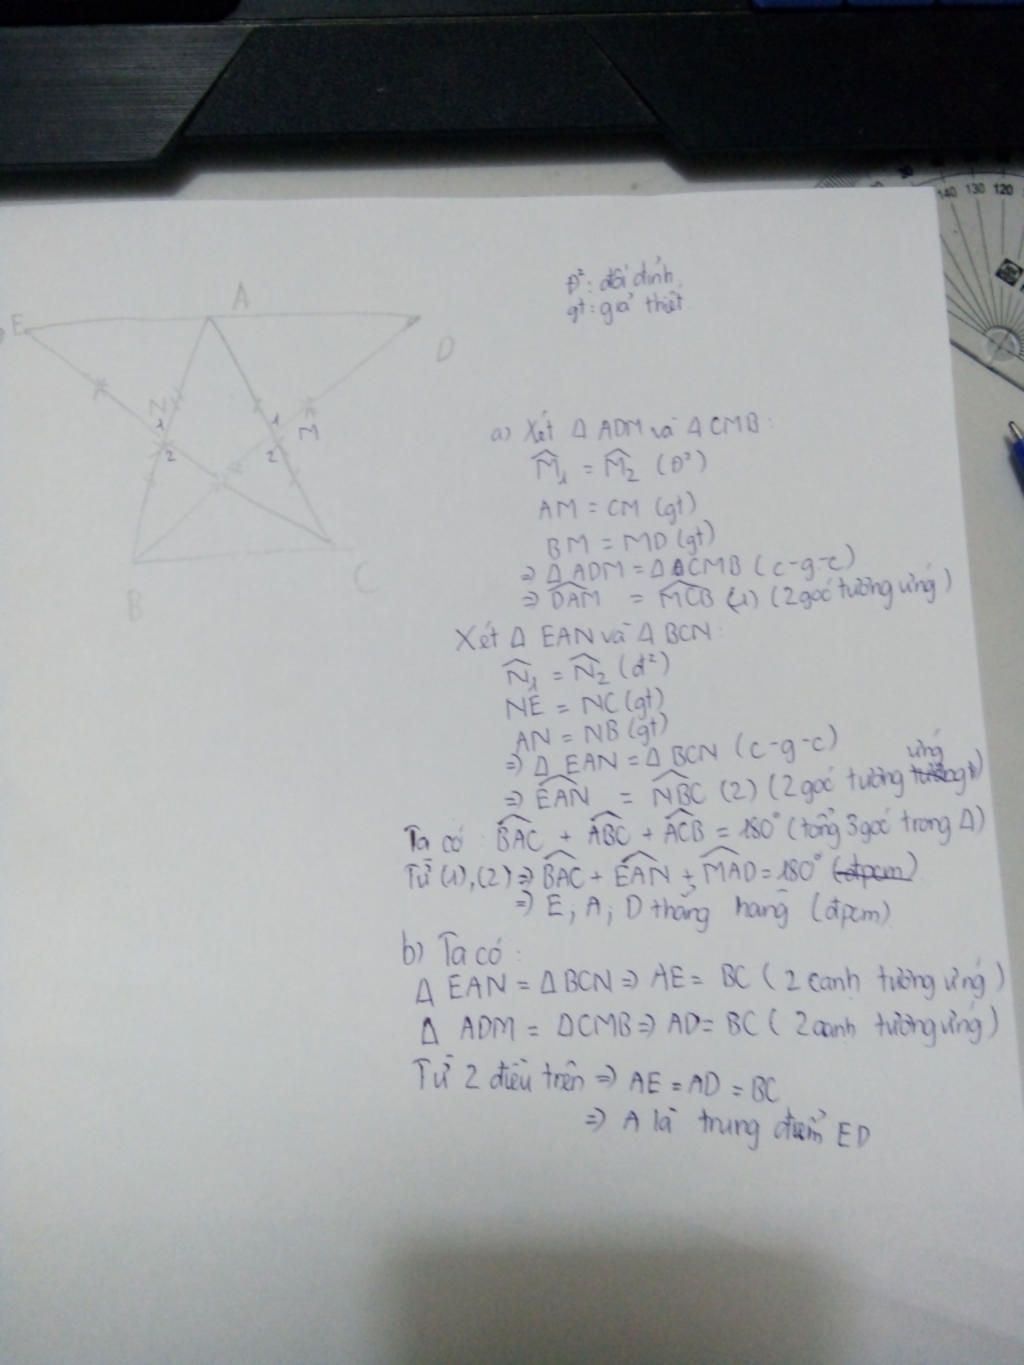 140 130 120
A
E
D
N
1
1
M
2
2
B
C
Đ²: đối đỉnh
gt: giả thiết
a) Xét Δ ADM và Δ CMB:
M̂₁ = M̂₂ (Đ²)
AM = CM (gt)
BM = MD (gt)
⇒ Δ ADM = Δ CMB (c-g-c)
⇒ D̂AM = M̂CB (1) (2 góc tương ứng)
Xét Δ EAN và Δ BCN:
N̂₁ = N̂₂ (đ²)
NE = NC (gt)
AN = NB (gt)
⇒ Δ EAN = Δ BCN (c-g-c)
⇒ ÊAN = N̂BC (2) (2 góc tương ứng)
Ta có: B̂AC + ÂBC + ÂCB = 180° (tổng 3 góc trong Δ)
Từ (1), (2) ⇒ B̂AC + ÊAN + M̂AD = 180° (đpcm)
⇒ E; A; D thẳng hàng (đpcm)
b) Ta có:
Δ EAN = Δ BCN ⇒ AE = BC (2 cạnh tương ứng)
Δ ADM = Δ CMB ⇒ AD = BC (2 cạnh tương ứng)
Từ 2 điều trên ⇒ AE = AD = BC
⇒ A là trung điểm ED